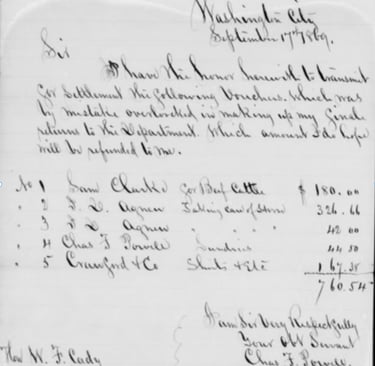 Washington City
September 17th 1869.
Sir
I have the honor herewith to transmit
for Settlement the following Vouchers. Which was
by mistake overlooked in making up my final
returns to the Department. Which amount I do hope
will be refunded to me.
No 1 Sam Clarke for Beef Cattle $ 180.00
" 2 D. D. Agnew Taking care of Stores 326.66
" 3 D D Agnew " " " 42 00
" 4 Chas F Powell Sundries 44 50
" 5 Crawford & Co Shirts & Etc 167.38
760.54
I am Sir Very Respectfully
Your Obt Servant
Chas F. Powell.
Hon W. F. Cady